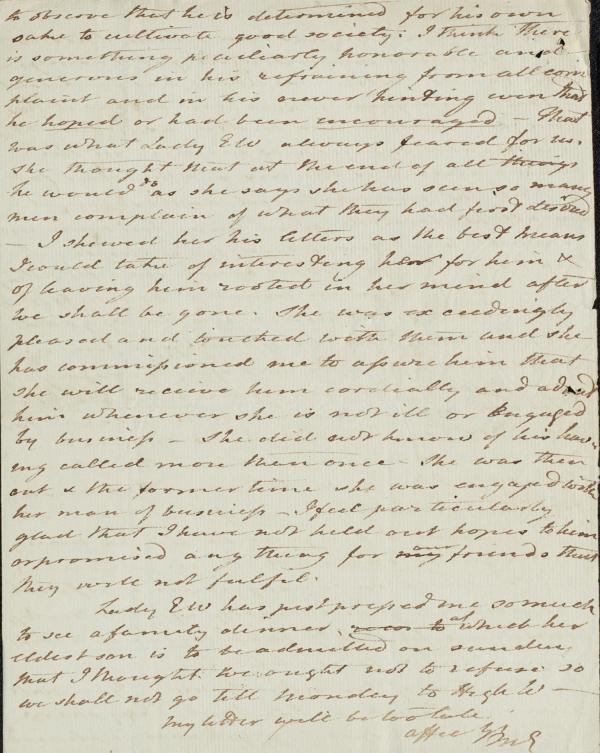 to observe that he is determined for his own
sake to cultivate good society: I think there
is something peculiarly honorable and
generous in his refraining from all com
plaint and in his never hinting even that
he hoped or had been encouraged - That
was what Lady EW always feared for us.
she thought that at the end of all things
he would do as she says she has seen so many
men complain of what they had first desired
- I shewed her his letters as the best means
I could take of interesting her for him &
of leaving him rooted in her mind after
we shall be gone. She was exceedingly
pleased and touched with them and she
has commissioned me to assure him that
she will receive him cordially and admit
him whenever she is not ill or engaged
by business - She did not know of his hav-
ing called more than once - She was then
out & the former time she was engaged with
her man of business - I feel particularly
glad that I have not held out hopes to him
or promised any thing for my our friends that
they will not fulfil.
Lady EW has just pressed me so much
to see a family dinner at which her
eldest son is to be admitted on sunday
that I thought we ought not to refuse so
we shall not go till Monday to High W -
My letter will be too late.
affec